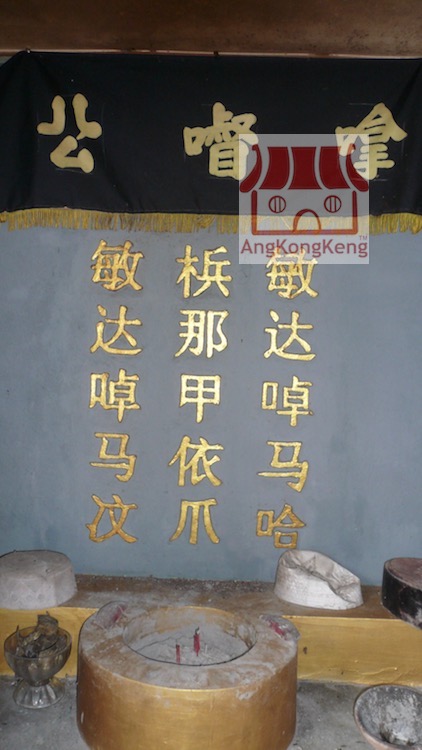 嗱公
敏达啅马哈
梹那甲依爪
敏达啅马汶
AngKongKeng